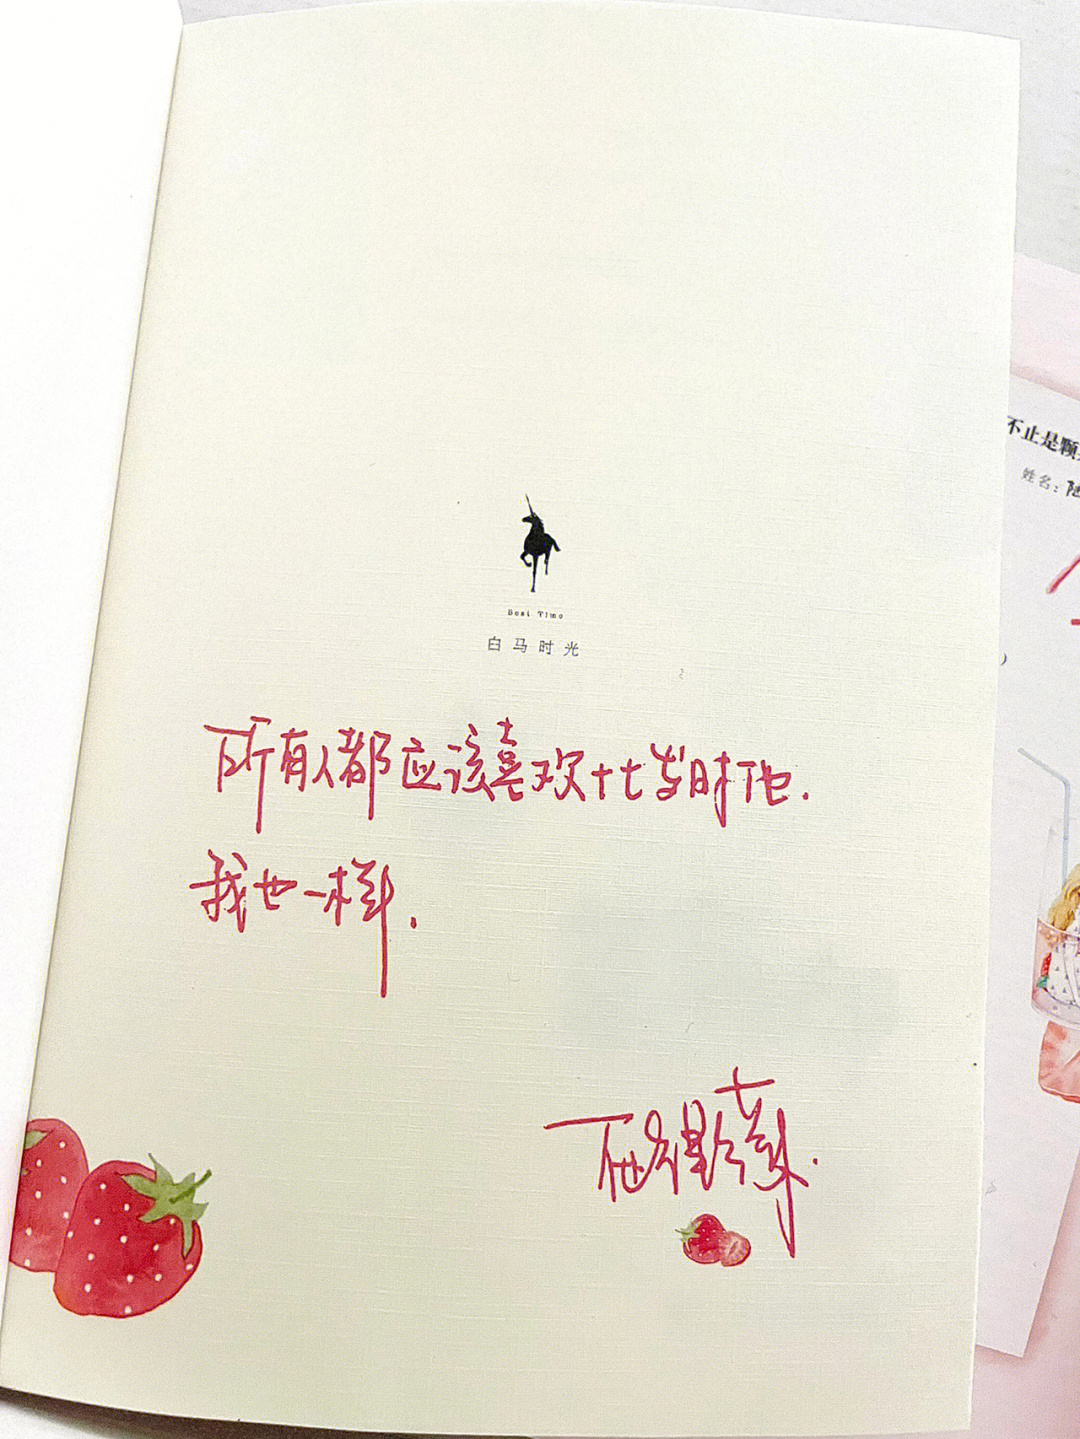 Best Time
白马时光
所有人都应该喜欢十七岁时他.
我也一样.
不止是颗
姓名：陆